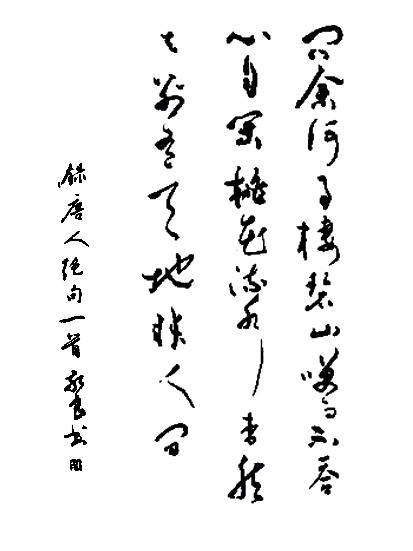 问余何事棲碧山咲而不答
心自闲桃花流水杳然
去别有天地非人间
録唐人绝句一首书